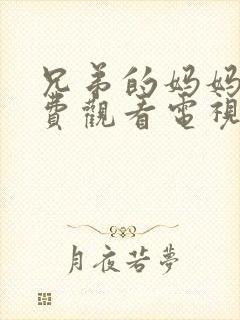 兄弟的妈妈
費觀看電視
月夜若夢